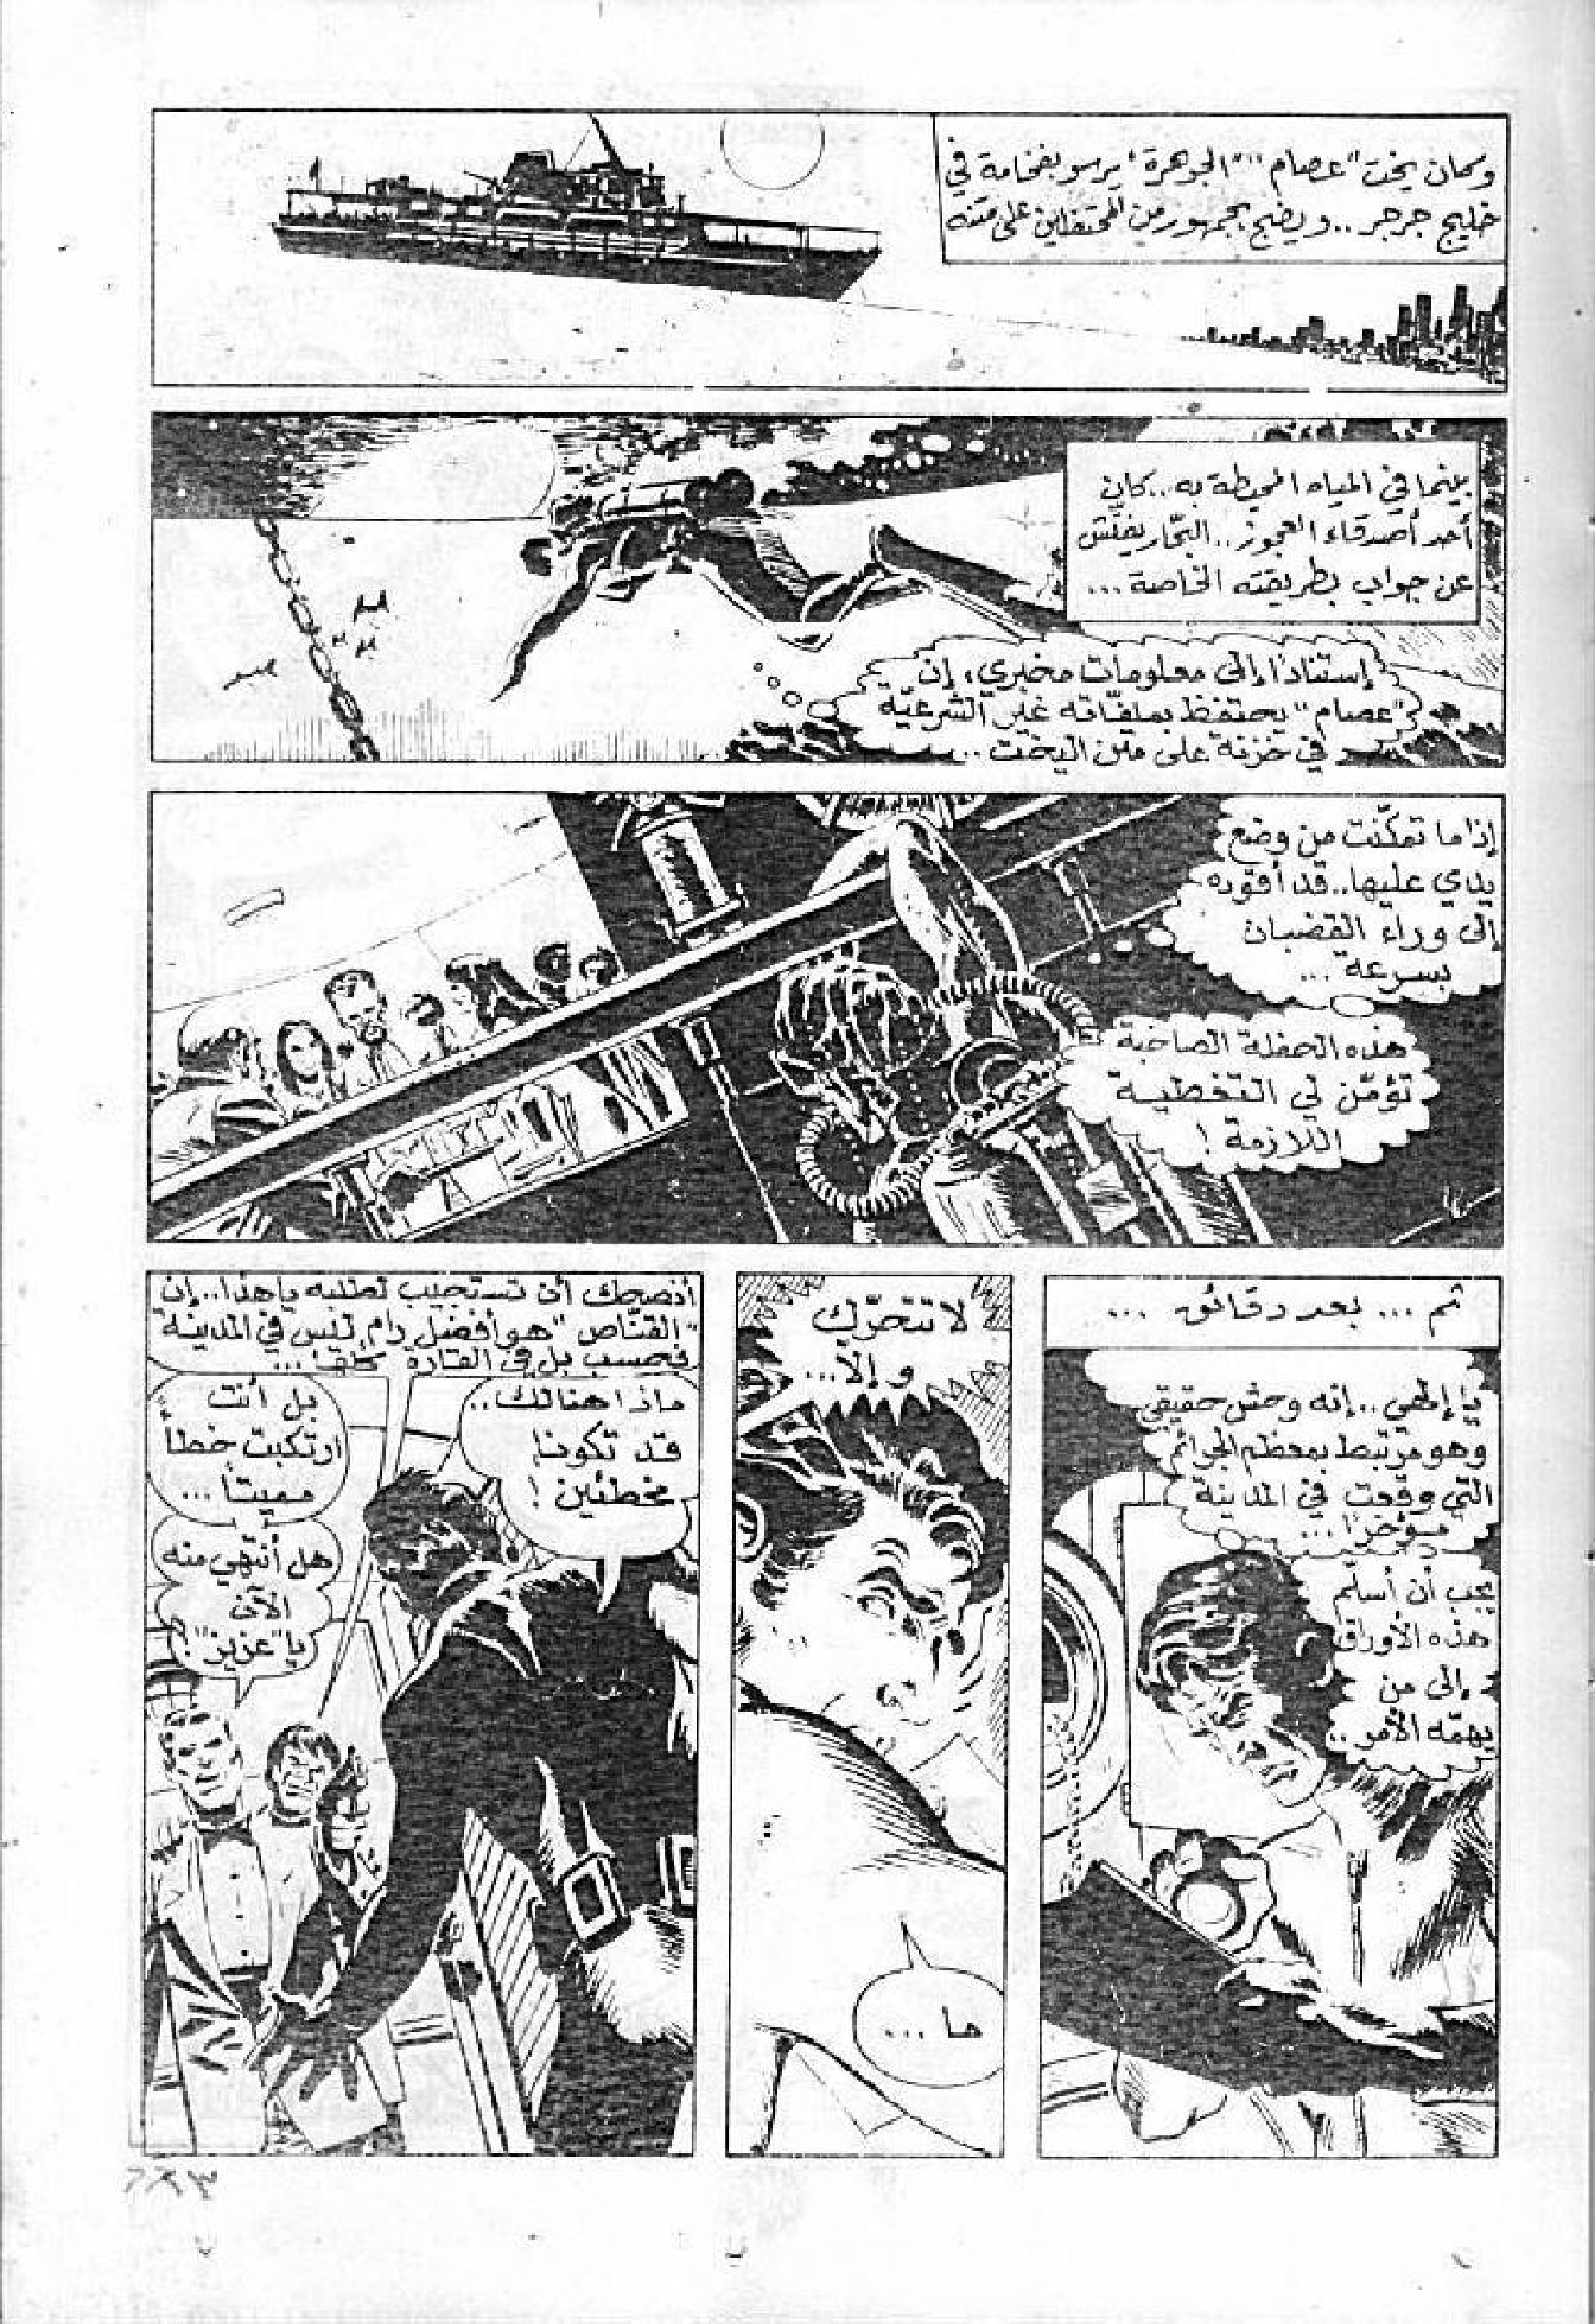 وكان يخت "عصام" "الجوهرة" يرسو بفخامة في
خليج جرجر .. ويضج بجمهور من المحتفلين على متنه
بينما في المياه المحيطة به... كان
أحد أصدقاء العجوز .. البحّار يفتّش
عن جواب بطريقته الخاصة ...
إستنادًا إلى معلومات مخبري، إن
"عصام" يحتفظ بملفّاته غير الشرعيّة
في خزنة على متن اليخت ..
إذا ما تمكّنت من وضع
يدي عليها.. قد أقوده
إلى وراء القضبان
بسرعة ...
هذه الحفلة الصاخبة
تؤمّن لي التغطية
اللازمة !
ثم ... بعد دقائق ...
يا إلهي .. إنه وحش حقيقي
وهو مرتبط بمعظم الجرائم
التي وقعت في المدينة
مؤخرًا ...
يجب أن أسلّم
هذه الأوراق
إلى من
يهمّه الأمر ..
لا تتحرّك
وإلّا ...
ما ...
أنصحك أن تستجيب لطلبه يا هذا.. إن
"القنّاص" هو أفضل رام ليس في المدينة
فحسب بل في القارة
ماذا هنالك..
قد تكونا
مخطئين !
بل أنت
ارتكبت خطأً
مميتاً ...
هل أنتهي منه
الآن
يا "عزيز" ؟